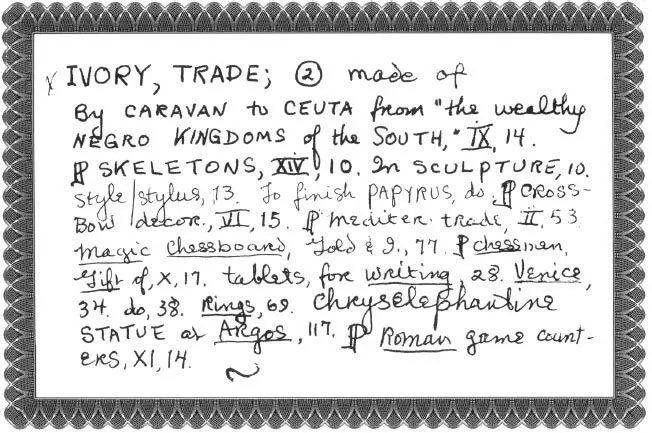 x IVORY, TRADE; ② made of
By CARAVAN to CEUTA from "the wealthy
NEGRO KINGDOMS of the SOUTH," IX, 14.
P SKELETONS, XIV, 10. In SCULPTURE, 10.
style/stylus, 13. To finish PAPYRUS, do. P CROSS-
BOW decor., VI, 15. P mediter. trade, II, 53
magic chessboard, Gold & I., 77. P chessmen,
Gift of, X, 17. tablets, for writing, 28. Venice,
34. do, 38. Rings, 69. Chryselephantine
STATUE at Argos, 117. P Roman game count-
ERS, XI, 14.